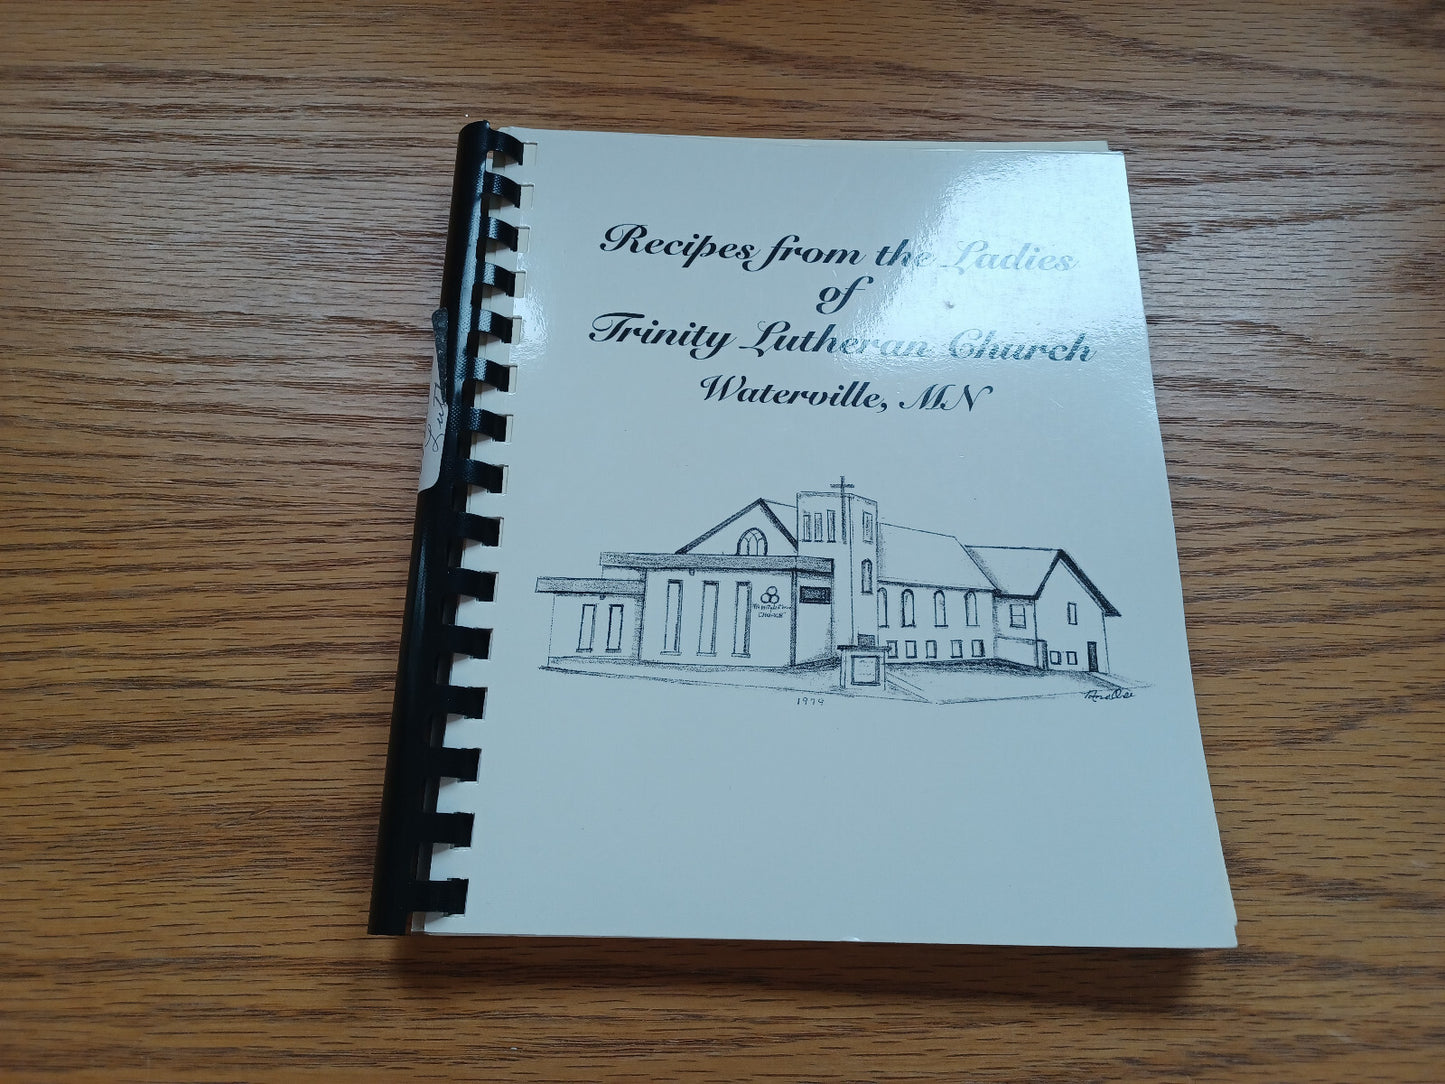 Recipes from the Ladies
of
Trinity Lutheran Church
Waterville, MN
CHURCH
1979